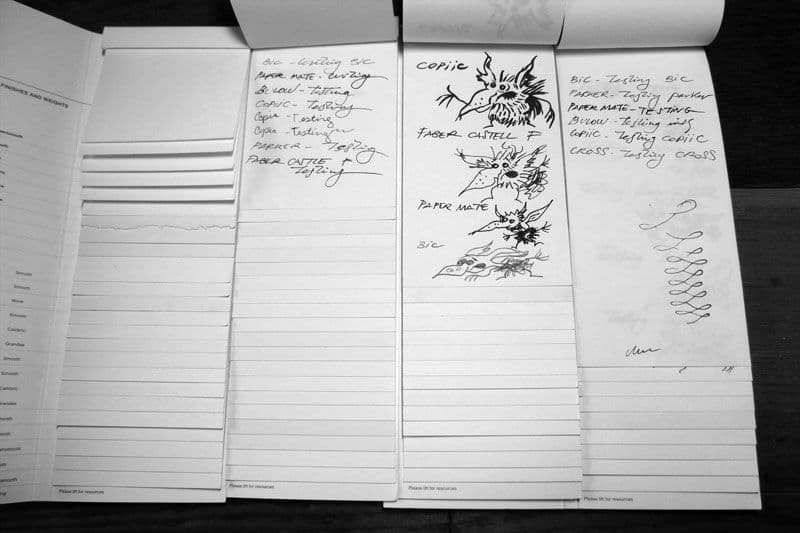 FINISHES AND WEIGHTS
Smooth
Smooth
Smooth
Cambric
Grandee
Smooth
Smooth
Cambric
Smooth
Please lift for resources
BIC - testing BIC
PAPER MATE - testing
BULOW - testing
COPIIC - Testing
Copic - Testing
Copic - Testing
PARKER - Testing
FABER CASTLE F
Testing
Please lift for resources
COPIIC
FABER CASTELL F
PAPER MATE
BIC
Please lift for resources
BIC - Testing BIC
PARKER - Testing parker
PAPER MATE - TESTING
BULOW - Testing
COPIIC - Testing COPIIC
CROSS - Testing CROSS
Please lift for resources